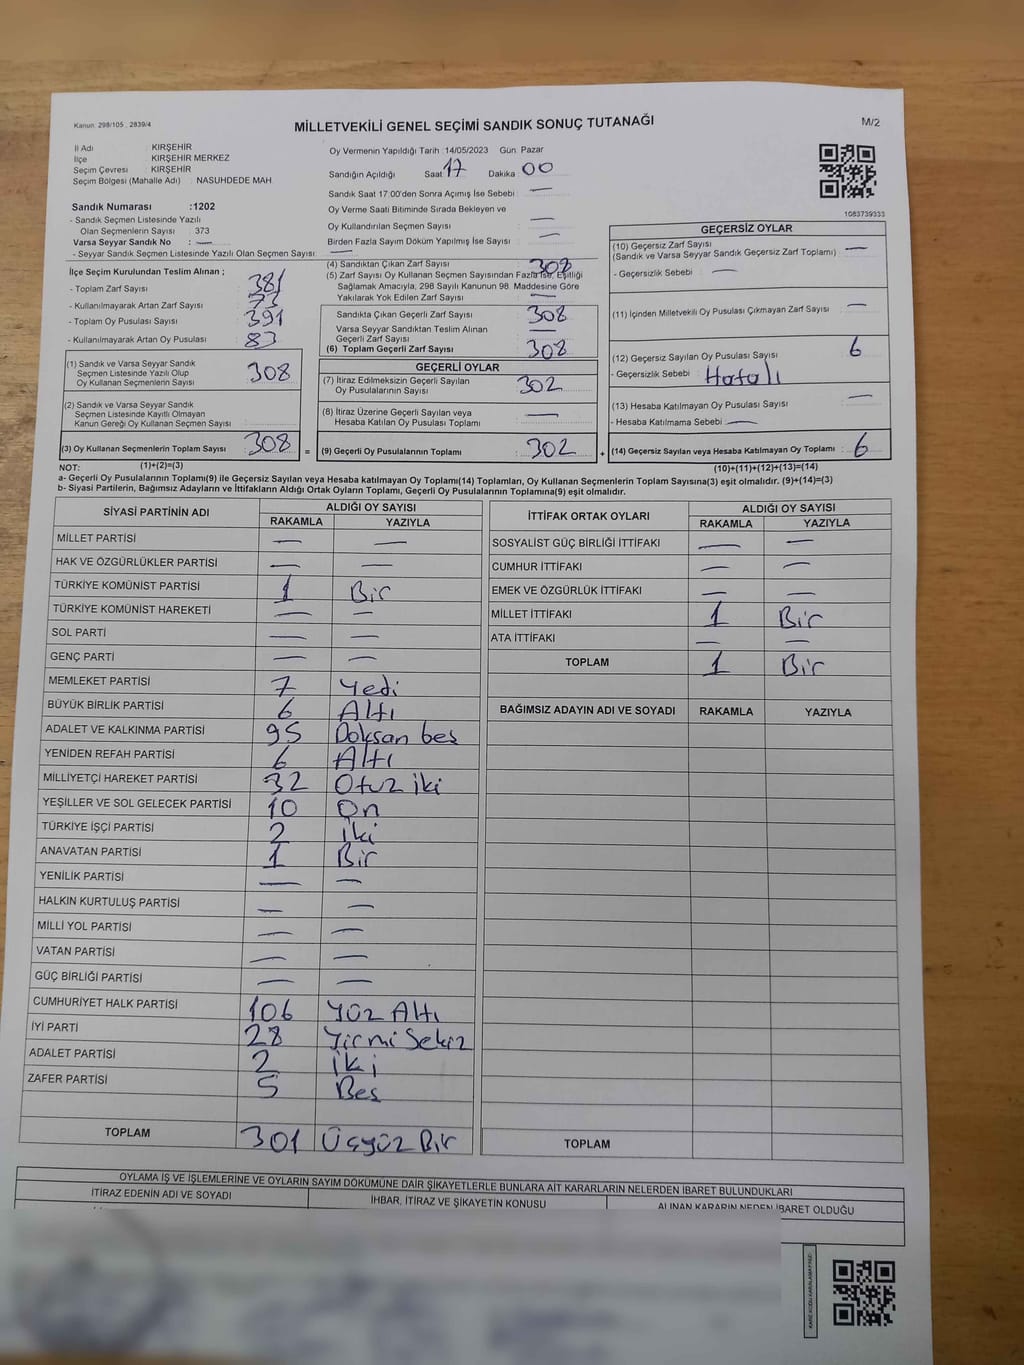 Kanun: 298/105 , 2839/4
MİLLETVEKİLİ GENEL SEÇİMİ SANDIK SONUÇ TUTANAĞI
M/2
İl Adı : KIRŞEHİR
İlçe : KIRŞEHİR MERKEZ
Seçim Çevresi : KIRŞEHİR
Seçim Bölgesi (Mahalle Adı) : NASUHDEDE MAH
Sandık Numarası :1202
- Sandık Seçmen Listesinde Yazılı
Olan Seçmenlerin Sayısı : 373
Varsa Seyyar Sandık No : —
- Seyyar Sandık Seçmen Listesinde Yazılı Olan Seçmen Sayısı : —
Oy Vermenin Yapıldığı Tarih :14/05/2023 Gün: Pazar
Sandığın Açıldığı Saat 17 Dakika 00
Sandık Saat 17:00'den Sonra Açımış İse Sebebi : —
Oy Verme Saati Bitiminde Sırada Bekleyen ve
Oy Kullandırılan Seçmen Sayısı : —
Birden Fazla Sayım Döküm Yapılmış İse Sayısı : —
1083739333
İlçe Seçim Kurulundan Teslim Alınan ;
- Toplam Zarf Sayısı : 381
- Kullanılmayarak Artan Zarf Sayısı : 73
- Toplam Oy Pusulası Sayısı : 391
- Kullanılmayarak Artan Oy Pusulası : 83
(1) Sandık ve Varsa Seyyar Sandık
Seçmen Listesinde Yazılı Olup
Oy Kullanan Seçmenlerin Sayısı : 308
(2) Sandık ve Varsa Seyyar Sandık
Seçmen Listesinde Kayıtlı Olmayan
Kanun Gereği Oy Kullanan Seçmen Sayısı :
(3) Oy Kullanan Seçmenlerin Toplam Sayısı : 308
(4) Sandıktan Çıkan Zarf Sayısı : 308
(5) Zarf Sayısı Oy Kullanan Seçmen Sayısından Fazla İse, Eşitliği
Sağlamak Amacıyla, 298 Sayılı Kanunun 98. Maddesine Göre
Yakılarak Yok Edilen Zarf Sayısı : —
Sandıkta Çıkan Geçerli Zarf Sayısı : 308
Varsa Seyyar Sandıktan Teslim Alınan
Geçerli Zarf Sayısı : —
(6) Toplam Geçerli Zarf Sayısı : 308
GEÇERLİ OYLAR
(7) İtiraz Edilmeksizin Geçerli Sayılan
Oy Pusulalarının Sayısı : 302
(8) İtiraz Üzerine Geçerli Sayılan veya
Hesaba Katılan Oy Pusulası Toplamı : —
= (9) Geçerli Oy Pusulalarının Toplamı : 302
GEÇERSİZ OYLAR
(10) Geçersiz Zarf Sayısı
(Sandık ve Varsa Seyyar Sandık Geçersiz Zarf Toplamı) : —
- Geçersizlik Sebebi : —
(11) İçinden Milletvekili Oy Pusulası Çıkmayan Zarf Sayısı : —
(12) Geçersiz Sayılan Oy Pusulası Sayısı : 6
- Geçersizlik Sebebi : Hatalı
(13) Hesaba Katılmayan Oy Pusulası Sayısı : —
- Hesaba Katılmama Sebebi : —
+ (14) Geçersiz Sayılan veya Hesaba Katılmayan Oy Toplamı : 6
NOT: (1)+(2)=(3)
(10)+(11)+(12)+(13)=(14)
a- Geçerli Oy Pusulalarının Toplamı(9) ile Geçersiz Sayılan veya Hesaba katılmayan Oy Toplamı(14) Toplamları, Oy Kullanan Seçmenlerin Toplam Sayısına(3) eşit olmalıdır. (9)+(14)=(3)
b- Siyasi Partilerin, Bağımsız Adayların ve İttifakların Aldığı Ortak Oyların Toplamı, Geçerli Oy Pusulalarının Toplamına(9) eşit olmalıdır.
SİYASİ PARTİNİN ADI ALDIĞI OY SAYISI
RAKAMLA YAZIYLA
MİLLET PARTİSİ — —
HAK VE ÖZGÜRLÜKLER PARTİSİ — —
TÜRKİYE KOMÜNİST PARTİSİ 1 Bir
TÜRKİYE KOMÜNİST HAREKETİ — —
SOL PARTİ — —
GENÇ PARTİ — —
MEMLEKET PARTİSİ 7 Yedi
BÜYÜK BİRLİK PARTİSİ 6 Altı
ADALET VE KALKINMA PARTİSİ 95 Doksan beş
YENİDEN REFAH PARTİSİ 6 Altı
MİLLİYETÇİ HAREKET PARTİSİ 32 Otuz iki
YEŞİLLER VE SOL GELECEK PARTİSİ 10 On
TÜRKİYE İŞÇİ PARTİSİ 2 İki
ANAVATAN PARTİSİ 1 Bir
YENİLİK PARTİSİ — —
HALKIN KURTULUŞ PARTİSİ — —
MİLLİ YOL PARTİSİ — —
VATAN PARTİSİ — —
GÜÇ BİRLİĞİ PARTİSİ — —
CUMHURİYET HALK PARTİSİ 106 Yüz Altı
İYİ PARTİ 28 Yirmi Sekiz
ADALET PARTİSİ 2 İki
ZAFER PARTİSİ 5 Beş
TOPLAM 301 Üçyüz Bir
İTTİFAK ORTAK OYLARI ALDIĞI OY SAYISI
RAKAMLA YAZIYLA
SOSYALİST GÜÇ BİRLİĞİ İTTİFAKI — —
CUMHUR İTTİFAKI — —
EMEK VE ÖZGÜRLÜK İTTİFAKI — —
MİLLET İTTİFAKI 1 Bir
ATA İTTİFAKI — —
TOPLAM 1 Bir
BAĞIMSIZ ADAYIN ADI VE SOYADI RAKAMLA YAZIYLA
TOPLAM
OYLAMA İŞ VE İŞLEMLERİNE VE OYLARIN SAYIM DÖKÜMÜNE DAİR ŞİKAYETLERLE BUNLARA AİT KARARLARIN NELERDEN İBARET BULUNDUKLARI
İTİRAZ EDENİN ADI VE SOYADI İHBAR, İTİRAZ VE ŞİKAYETİN KONUSU ALINAN KARARIN NEDEN İBARET OLDUĞU